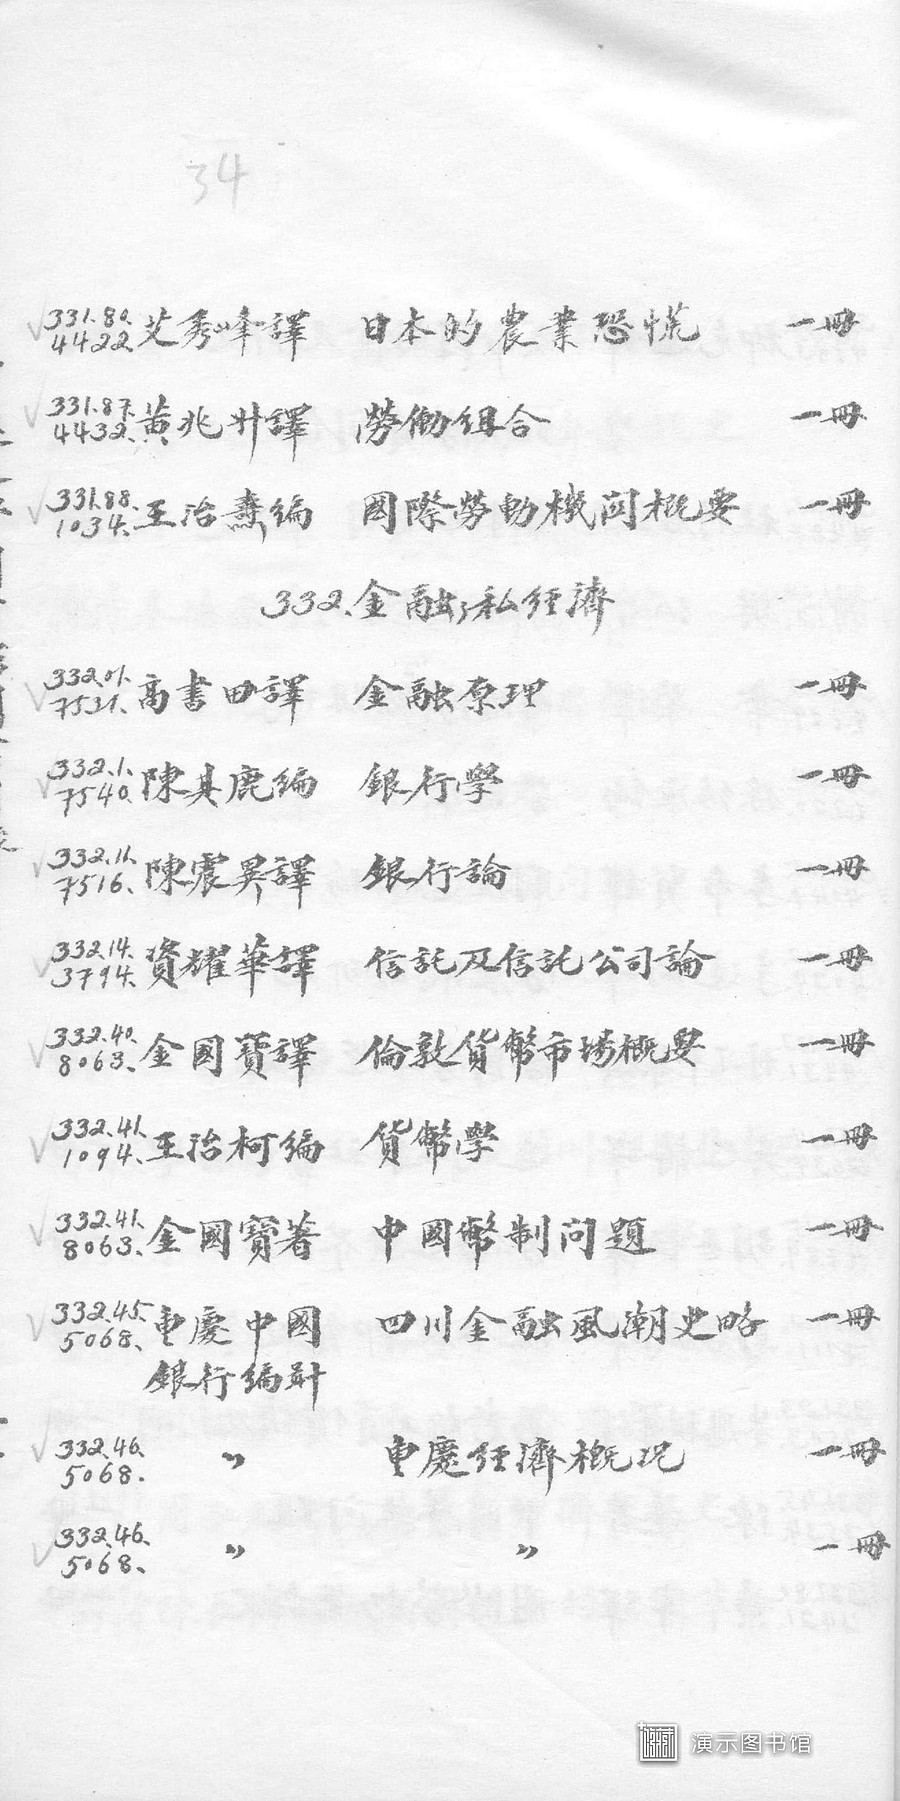 34
331.80. 4422. 艾秀峰譯 日本的農業恐慌 一冊
331.87. 4432. 黄兆升譯 勞働組合 一冊
331.88. 1034. 王治燾編 國際勞動機関概要 一冊
332. 金融,私經濟
332.01. 7531. 高書田譯 金融原理 一冊
332.1. 7540. 陳其鹿編 銀行學 一冊
332.11. 7516. 陳震異譯 銀行論 一冊
332.14. 3794. 資耀華譯 信託及信託公司論 一冊
332.40. 8063. 金國寶譯 倫敦貨幣市場概要 一冊
332.41. 1094. 王治柯編 貨幣學 一冊
332.41. 8063. 金國寶著 中國幣制问題 一冊
332.45. 5068. 重慶中國 四川金融風潮史略 一冊
銀行編計
332.46. 5068. 〃 重慶經濟概况 一冊
332.46. 5068. 〃 〃 一冊
演示图书馆